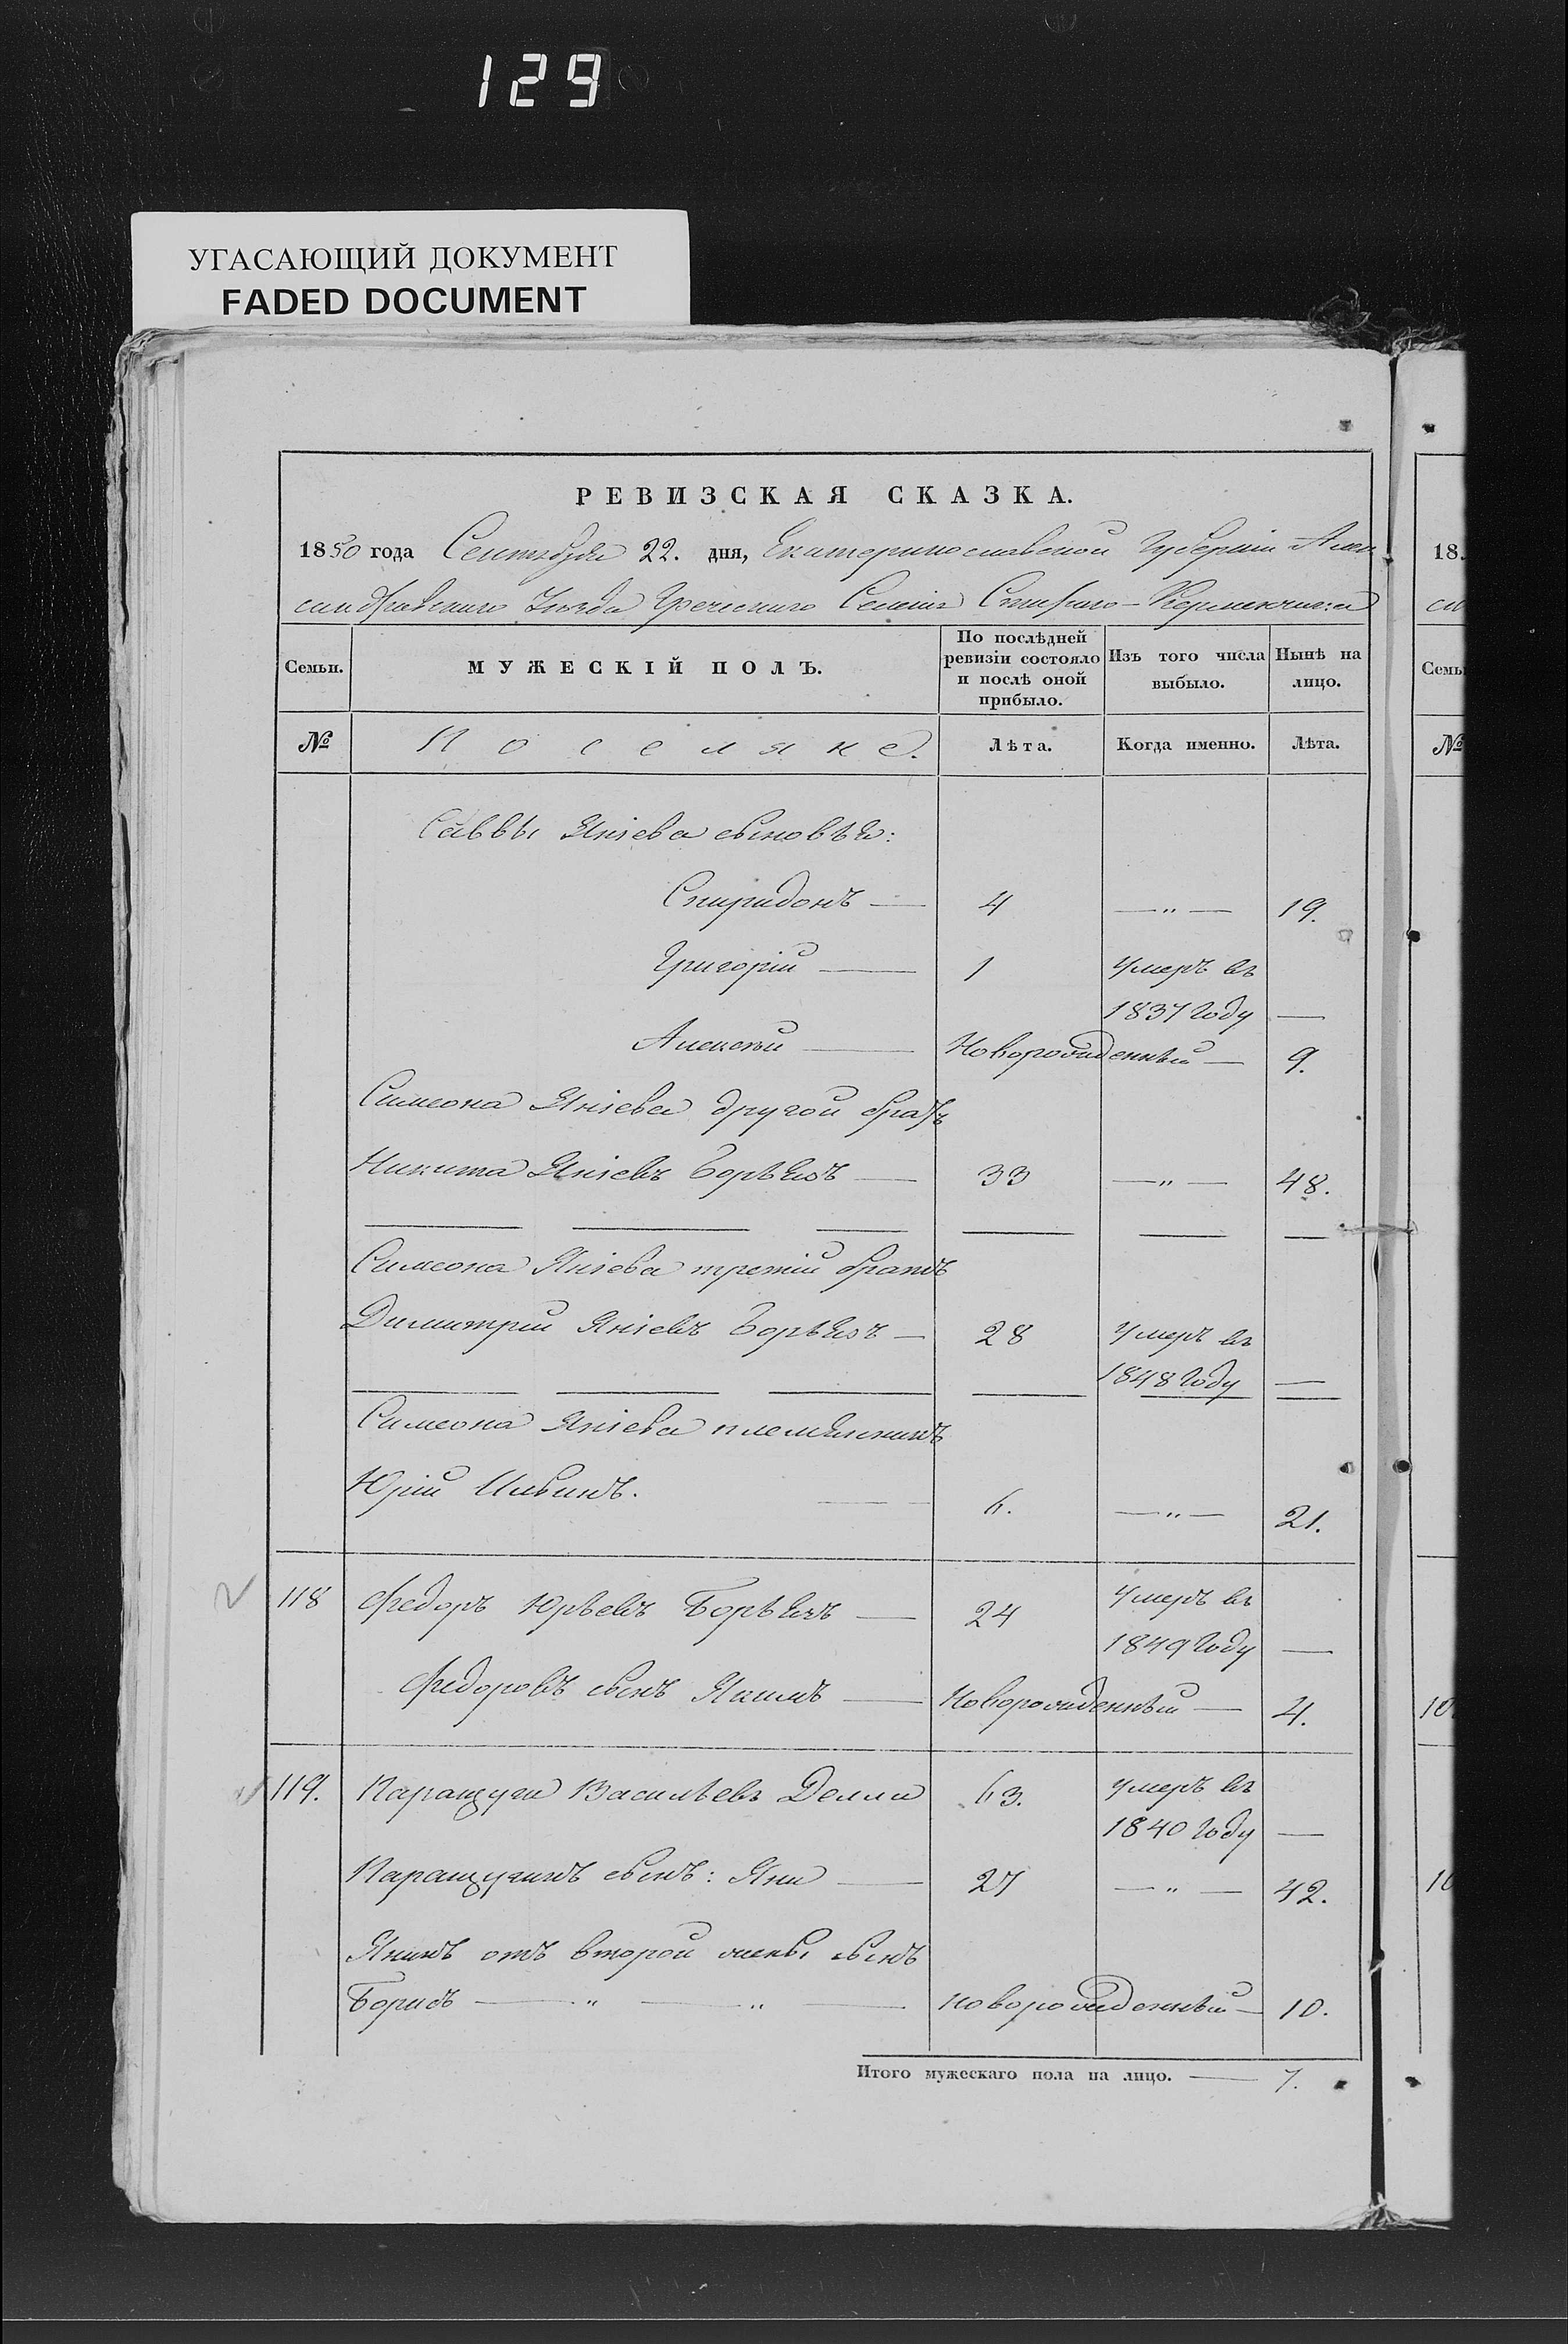 129
УГАСАЮЩИЙ ДОКУМЕНТ
FADED DOCUMENT
РЕВИЗСКАЯ СКАЗКА.
1850 года Сентября 22. дня, Екатеринославской Губерніи Алек
сандровскаго Уѣзда Греческаго Селенія Стараго-Керменчика
Семьи. МУЖЕСКІЙ ПОЛЪ. По послѣдней ревизіи состояло и послѣ оной прибыло. Изъ того числа выбыло. Нынѣ на лицо.
№ Поселяне. Лѣта. Когда именно. Лѣта.
Саввы Яніева сыновья:
Спиридонъ — 4 —„— 19.
Григорій — 1 Умеръ въ
1837 году —
Алексѣй — Новорожденный — 9.
Симеона Яніева другой братъ
Никита Яніевъ — 33 —„— 48.
Симеона Яніева третій братъ
Димитрій Яніевъ — 28 Умеръ въ
1848 году —
Симеона Яніева племянникъ
Юрій Ильинъ. — 6. —„— 21.
118 Федоръ Юрьевъ — 24 Умеръ въ
1849 году —
Федоровъ сынъ Якимъ — Новорожденный — 4.
119. Васильевъ Делли 63. Умеръ въ
1840 году —
сынъ: Яни — 27 —„— 42.
Янинъ отъ второй жены сынъ
Борисъ —„—„— новорожденный — 10.
Итого мужескаго пола на лицо. — 7.
18.
Семь
№
10
10